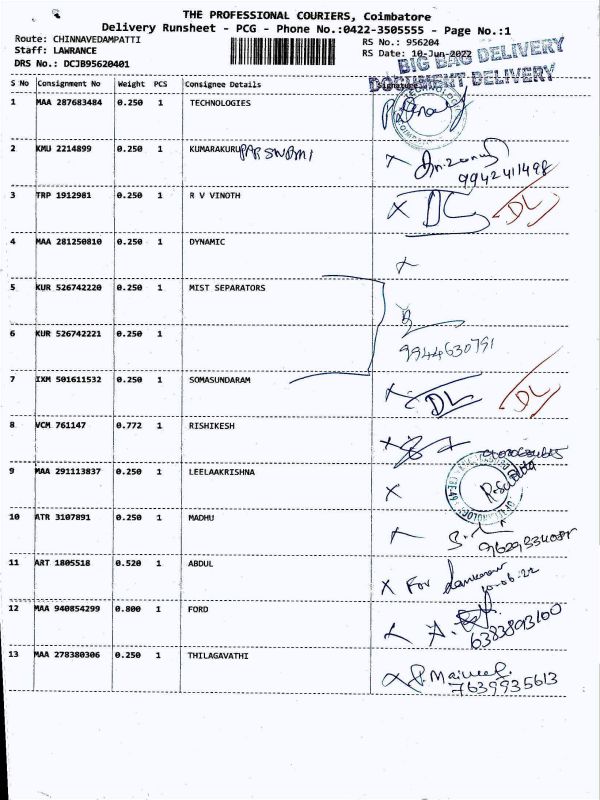 THE PROFESSIONAL COURIERS, Coimbatore
Delivery Runsheet - PCG - Phone No.:0422-3505555 - Page No.:1
Route: CHINNAVEDAMPATTI
RS No.: 956204
Staff: LAWRANCE
RS Date: 10-Jun-2022
DRS No.: DCJB95620401
BIG BAG DELIVERY
DOCUMENT DELIVERY
S No Consignment No Weight PCS Consignee Details Signature
1 MAA 287683484 0.250 1 TECHNOLOGIES
2 KMU 2214899 0.250 1 KUMARAKURUPARSWAMI
9942411498
3 TRP 1912981 0.250 1 R V VINOTH X DL DL
4 MAA 281250810 0.250 1 DYNAMIC
5 KUR 526742220 0.250 1 MIST SEPARATORS
6 KUR 526742221 0.250 1
9944630791
7 IXM 501611532 0.250 1 SOMASUNDARAM X DL DL
8 VCM 761147 0.772 1 RISHIKESH
9 MAA 291113837 0.250 1 LEELAAKRISHNA X
10 ATR 3107891 0.250 1 MADHU
11 ART 1805518 0.520 1 ABDUL X For
10-06-22
12 MAA 940854299 0.800 1 FORD
6383893100
13 MAA 278380306 0.250 1 THILAGAVATHI
7639935613